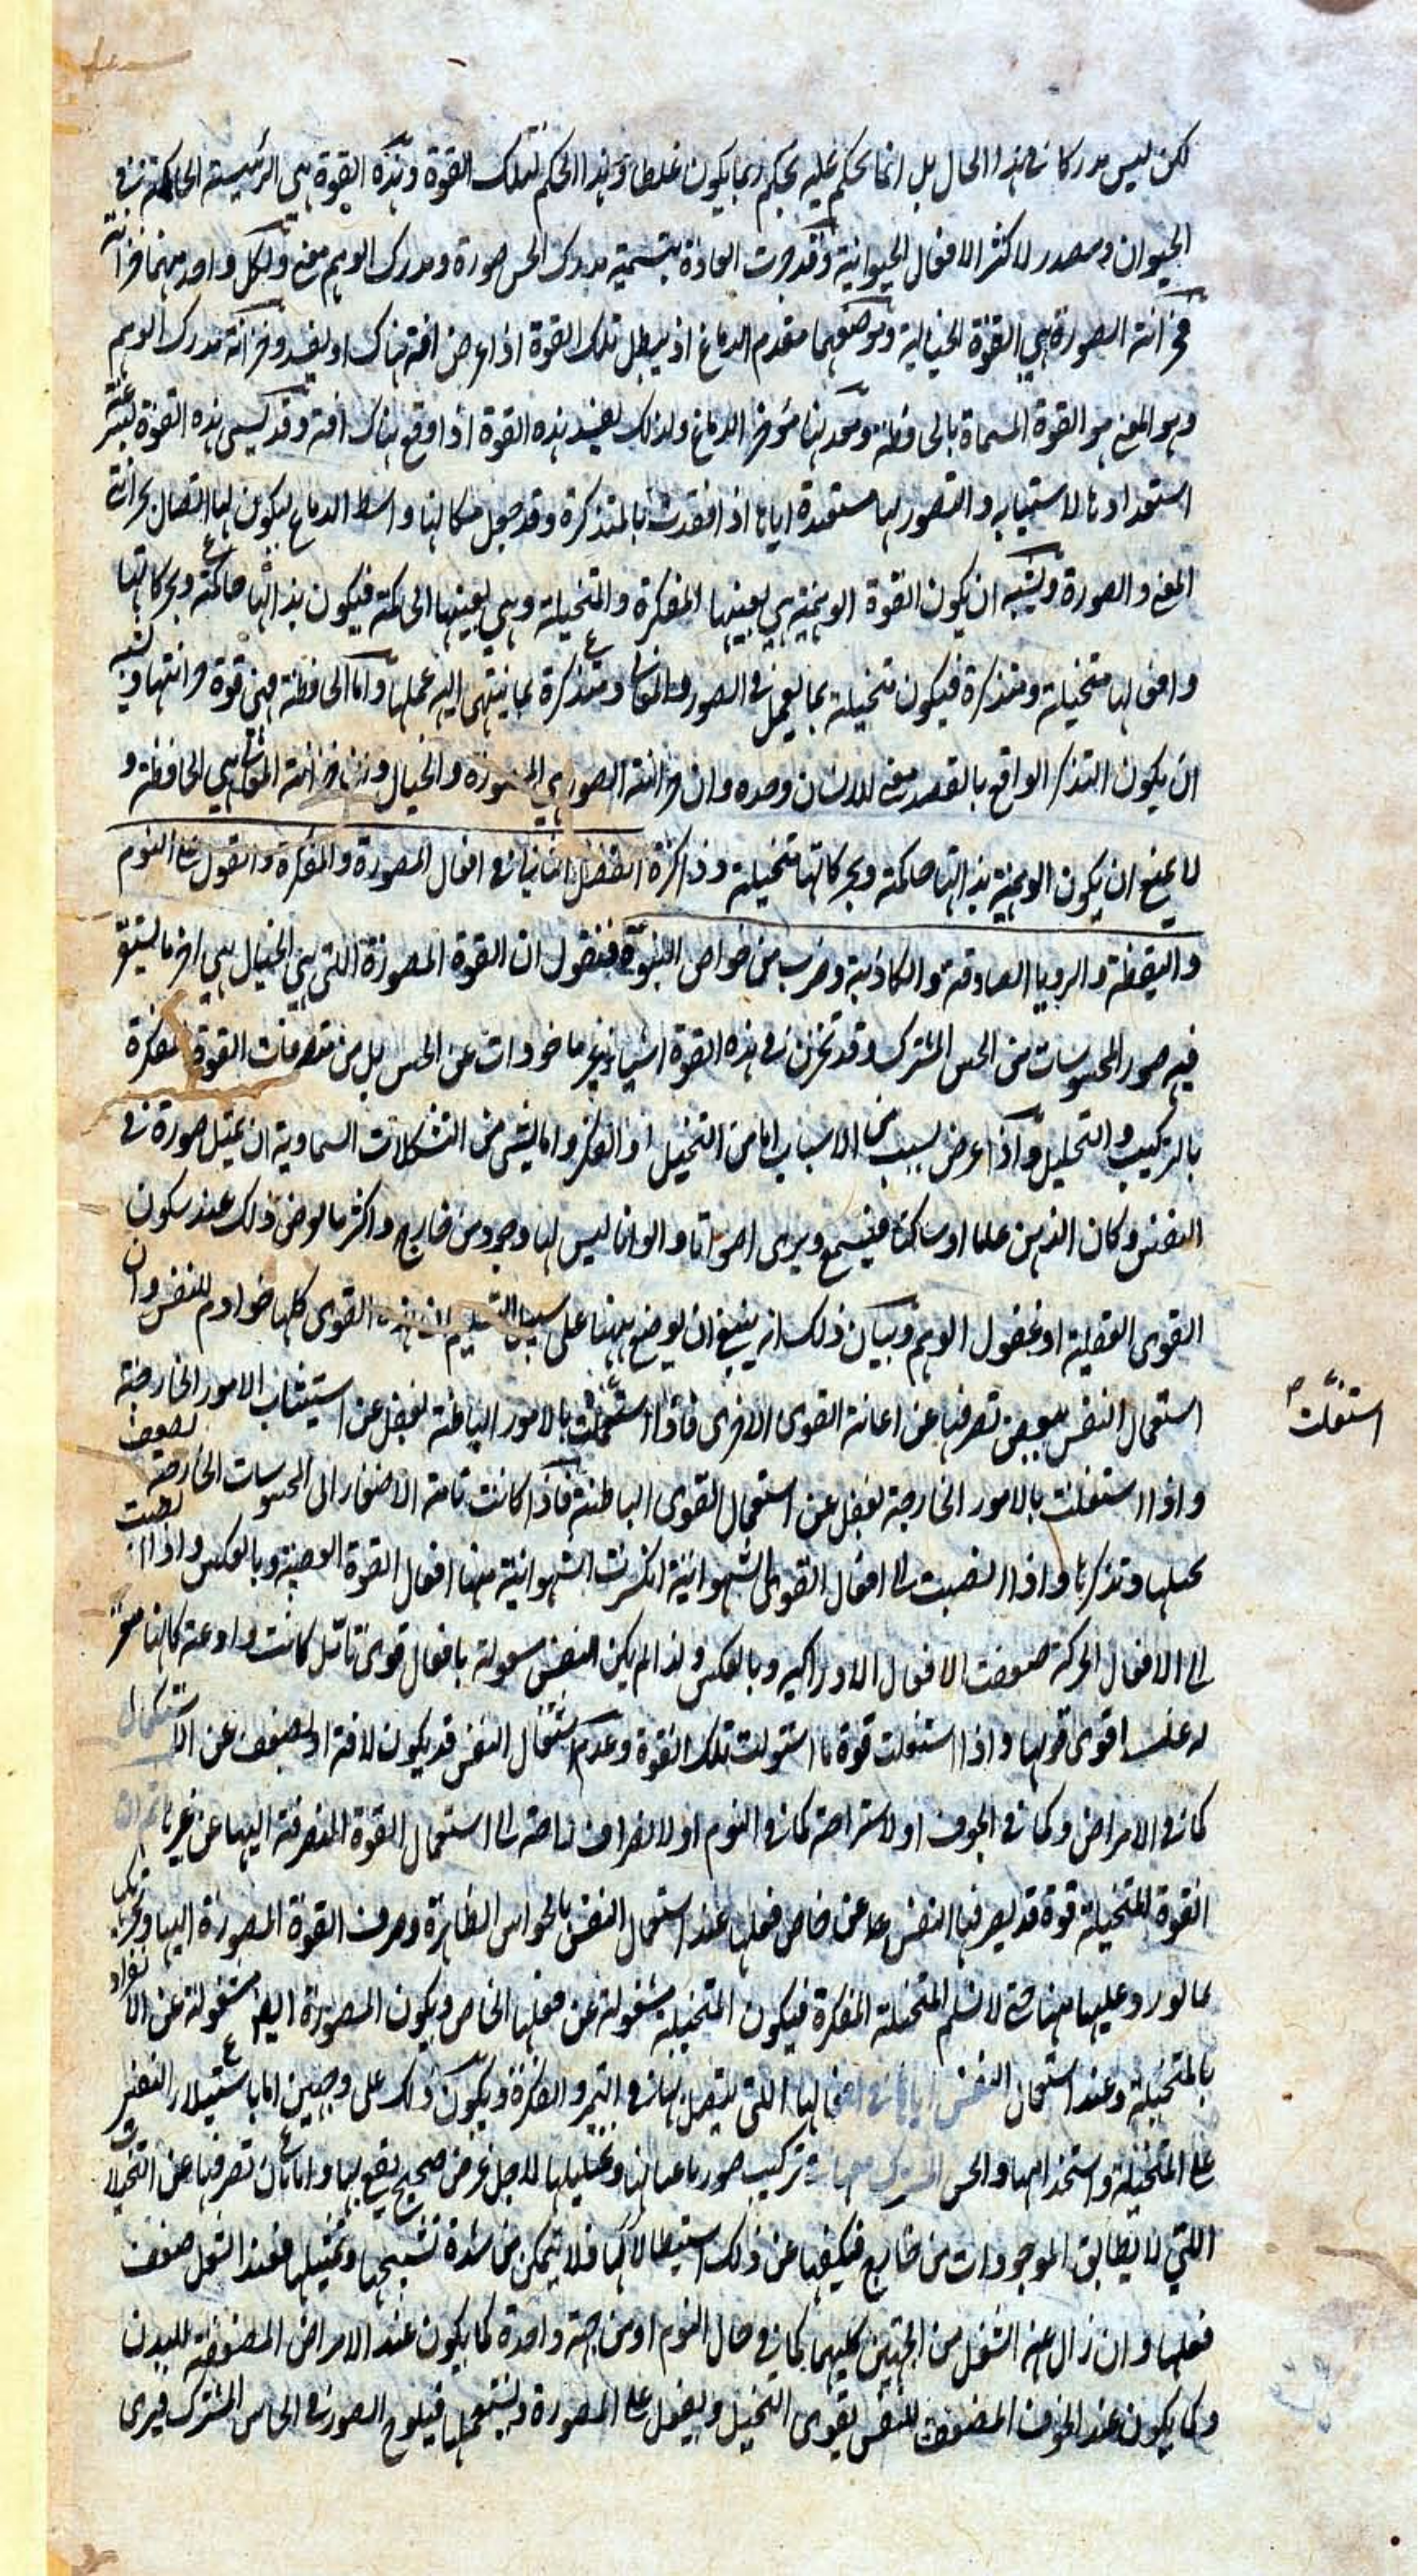 لكن ليس مدركا في هذه الحال بل انما يحكم عليه بحكم ربما يكون غلطا وهذا الحكم لتلك القوة وهذه القوة هي الرئيسة الحاكمة في
الحيوان ومصدر لاكثر الافعال الحيوانية وقد جرت العادة بتسمية مدرك الحس صورة ومدرك الوهم معنى ولكل واحد منهما خزانة
فخزانة الصورة هي القوة الخيالية وموضعها مقدم الدماغ اذ يبطل تلك القوة اذا عرض افة هناك او يفسد وخزانة مدرك الوهم
وهو المعنى هو القوة المسماة بالحافظة ومعدنها مؤخر الدماغ ولذلك يفسد هذه القوة اذا وقع هناك افة وقد يسمى هذه القوة
استعدادها لاستثباته والتصور لها مستعيدة اياها اذا فقدت بالمتذكرة وقد جعل مكانها واسط الدماغ ليكون لها اتصال بخزانة
المعنى والصورة ويشبه ان يكون القوة الوهمية هي بعينها المفكرة والمتخيلة وهي بعينها الحاكمة فيكون بذاتها حاكمة وبحركاتها
وافعالها متخيلة ومتذكرة فيكون متخيلة بما يعمل في الصور والمعاني ومتذكرة بما ينتهى اليه عملها واما الحافظة فهي قوة خزانتها ويشبه
ان يكون التذكر الواقع بالقصد معنى للانسان وحده وان خزانة الصور هي المصورة والخيال وان خزانة المعاني هي الحافظة و
لا يمنع ان يكون الوهمية بذاتها حاكمة وبحركاتها متخيلة وذاكرة الفصل الثاني في افعال المصورة والمفكرة والقول على النوم
واليقظة والرويا الصادقة والكاذبة وضرب من خواص النبوة فنقول ان القوة المصورة التي هي الخيال هي اخر ما يستقر
فيه صور المحسوسات من الحس المشترك وقد تخزن في هذه القوة اشياء غير ماخوذات عن الحس بل من تصرفات القوة المفكرة
بالتركيب والتحليل واذا عرض لسبب من الاسباب اما من التخيل او الفكر واما لشي من التشكلات السماوية ان يتمثل صورة في
النفس وكان الذهن غائبا او ساكنا فيسمع ويرى اصواتا والوانا ليس لها وجود من خارج واكثر ما يعرض ذلك عند سكون
القوى العقلية او غفول الوهم وبيان ذلك انه ينبغي ان يوضع ههنا على سبيل التسليم ان هذه القوى كلها خوادم للنفس وان
استعمال النفس لبعض تصرفها عن اعانة القوى الاخرى فاذا استعملت بالامور الباطنة يغفل عن استيثاب الامور الخارجة
استغلت
واذا اشتغلت بالامور الخارجة يغفل عن استعمال القوى الباطنة فاذا كانت تامة الاصغاء الى المحسوسات الخارجة يضعف
تخيلها وتذكرها واذا انصبت الى افعال القوى الشهوانية انكسرت الشهوانية منها افعال القوة الغضبية وبالعكس واذا انصبت
الى الافعال الحركة ضعفت الافعال الادراكية وبالعكس ولذا لم يكن النفس مشغولة بافعال قوى ما بل كانت وادعة كانها
له غلب اقوى قواها واذا اشتغلت قوة ما استولت تلك القوة وعدم اشتغال النفس قد يكون لافة او لضعف عن الاستكمال
كما في الامراض وكما في الخوف او لاستراحة كما في النوم او لانصراف الى استعمال القوة المنصرفة اليها عن غيرها ثم ان
القوة المتخيلة قوة قد يصرفها النفس عن خاص فعلها عند استعمال النفس بالحواس الظاهرة وصرف القوة المصورة اليها وتحريكها
بما يورد عليها منها حتى لا تسلم المتخيلة المفكرة فيكون المتخيلة مشغولة عن فعلها الخاص ويكون المصورة ايضا مشغولة عن الانفراد
بالمتخيلة وعند استعمال النفس اياها في افعالها التي يتصل بها في التميز والفكرة ويكون ذلك على وجهين اما باستيلاء النفس
على المتخيلة واستخدامها والحس المشترك معها في تركيب صور باعيانها وتحليلها لاجل غرض صحيح يقع لها واما بان تصرفها عن التخيلات
اللتي لا يطابق الموجودات من خارج فيكفها عن ذلك استبطالا لها فلا يتمكن من شدة تشبيحها وتمثيلها فعند الشغل ضعف
فعلها وان زال عنه الشغل من الجهتين كليهما كما في حال النوم او من جهة واحدة كما يكون عند الامراض المضعفة للبدن
وكما يكون عند الخوف المضعف للنفس يقوى التخيل ويقبل على المصورة ويستعملها فيلوح الصور في الحاس المشترك فيرى